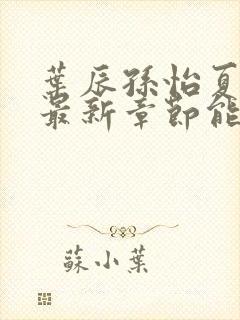 葉辰孫怡夏
最新章節能
蘇小葉